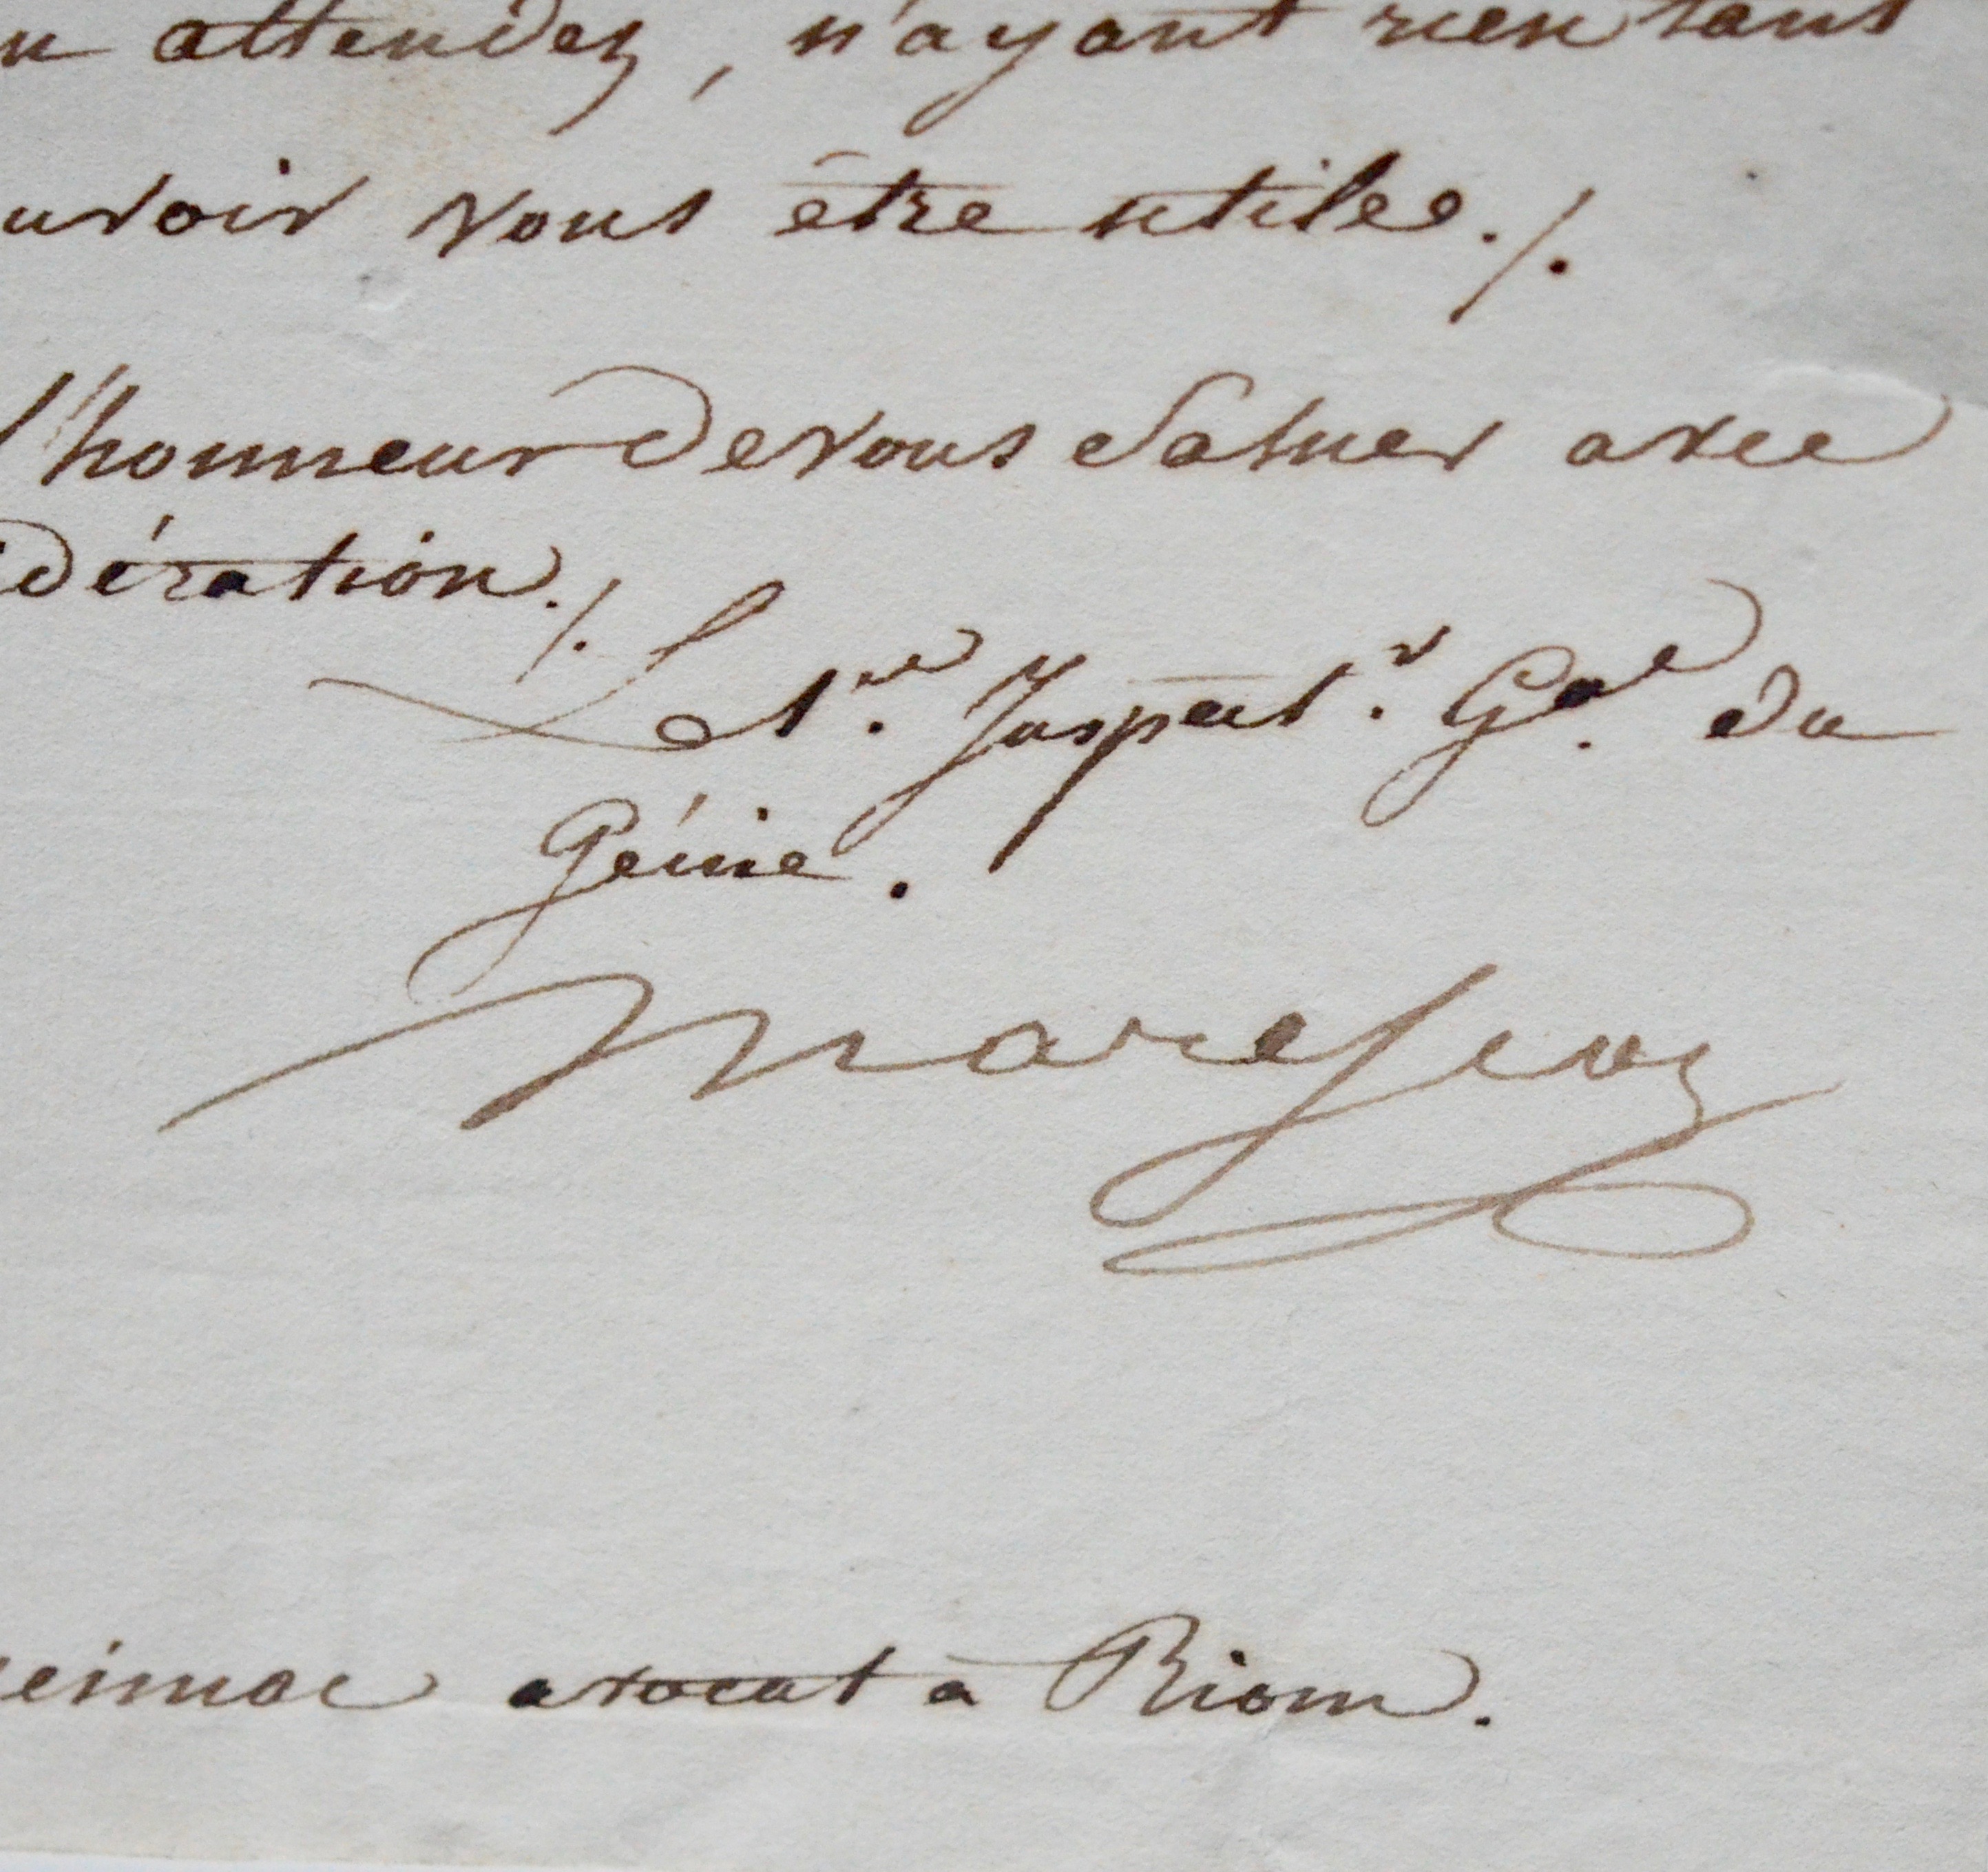 n attendez, n'ayant rien tant
uvoir vous être utile./.
l'honneur de vous Saluer avec
dération./.
Le 1.er Inspect.r G.al du
Génie.
Marescot
einnac avocat a Riom.